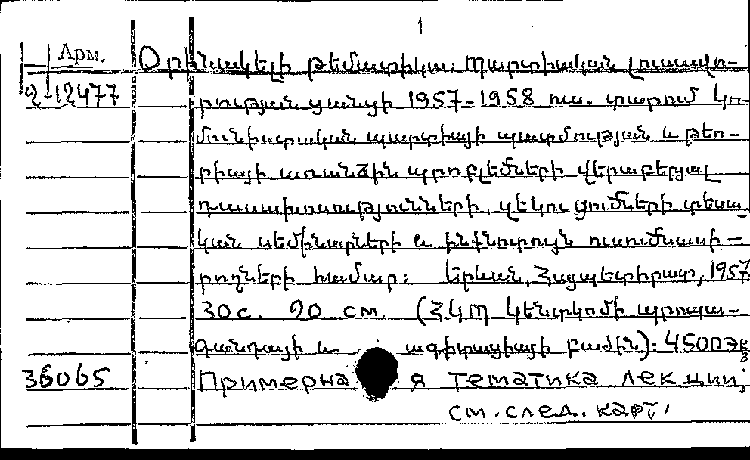 1
Арм. Օրինակելի թեմատիկա: Պարտիական լուսավո-
2-12477 րության ցանցի 1957-1958 ուս. տարում Կո-
մունիստական պարտիայի պատմության և թեո-
րիայի առանձին պրոբլեմների վերաբերյալ
դասախոսությունների, զեկուցումների տեսա-
կան սեմինարների և ինքնուրույն ուսումնասի-
րողների համար: Երևան, Հայպետհրատ, 1957
30с. 20 см. (ՀԿՊ Կենտկոմի պրոպա-
գանդայի և ագիտացիայի բաժին): 4500էկ
36065 Примерная тематика лекции;
см. след. карт.